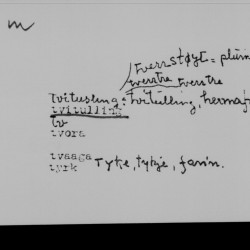 m
tverrstøyt = plum
tverrtre tverrtre
tvitusling = tvitulling, hermaf
tvitulling
tv
tvora
tvaaga
tyrk Tyke, tykje, fanin.